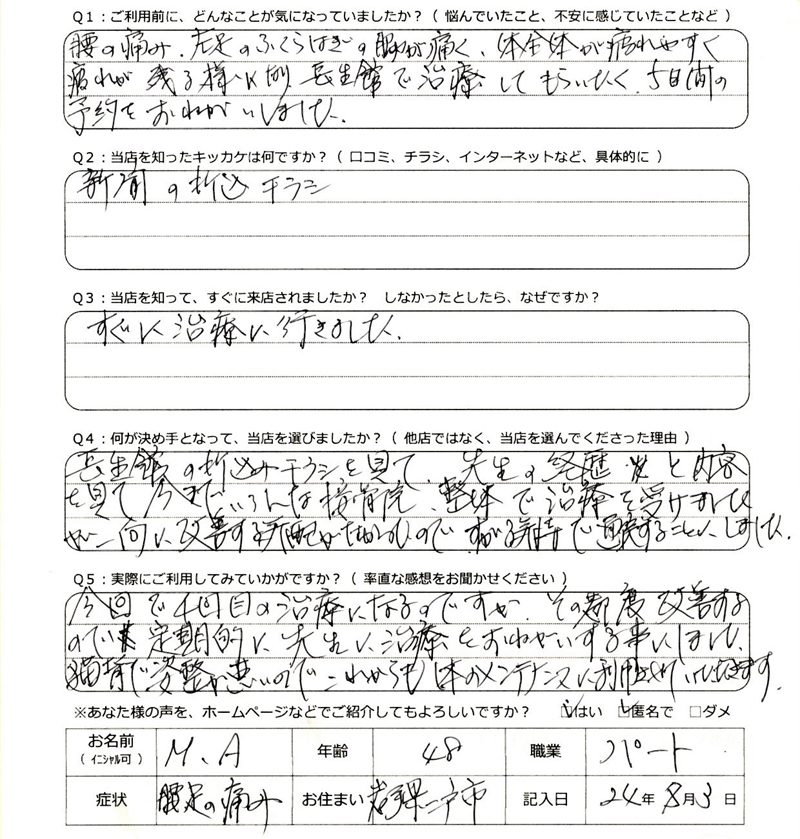 Q1：ご利用前に、どんなことが気になっていましたか？（ 悩んでいたこと、不安に感じていたことなど ）
腰の痛み、左足のふくらはぎの脇が痛く、体全体が疲れやすく
疲れが残る様になり長生館で治療してもらいたく、5日間の
予約をおねがいしました。
Q2：当店を知ったキッカケは何ですか？（ 口コミ、チラシ、インターネットなど、具体的に ）
新聞の折込チラシ
Q3：当店を知って、すぐに来店されましたか？　しなかったとしたら、なぜですか？
すぐに治療に行きました。
Q4：何が決め手となって、当店を選びましたか？（ 他店ではなく、当店を選んでくださった理由 ）
長生館の折込みチラシを見て、先生の経歴と内容
を見て今までいろんな接骨院、整体で治療を受けました
が一向に改善する気配がなかったのですがる気持で通院することにしました。
Q5：実際にご利用してみていかがですか？（ 率直な感想をお聞かせください ）
今回で4回目の治療になるのですが、その都度改善する
ので定期的に先生に治療をおねがいする事にしました。
猫背で姿勢が悪いのでこれからも体のメンテナンスに利用させていただきます。
※あなた様の声を、ホームページなどでご紹介してもよろしいですか？　☑はい　☑匿名で　□ダメ
お名前（ イニシャル可 ）　M.A　年齢　48　職業　パート
症状　腰足の痛み　お住まい　岩手県二戸市　記入日　24年 8月3日